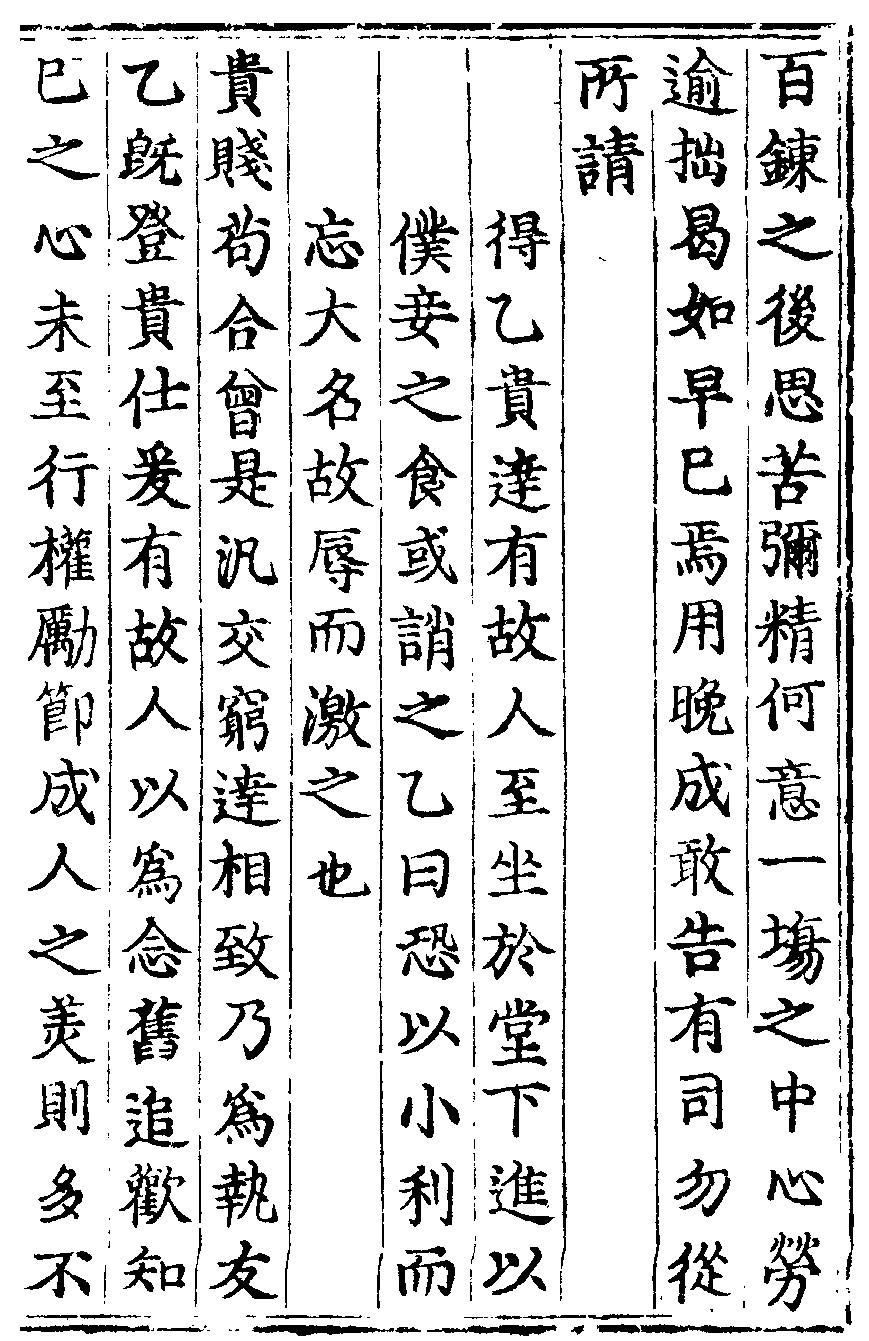 百鍊之後思苦彌精何意一場之中心勞
逾拙曷如早已焉用晚成敢告有司勿從
所請
得乙貴達有故人至坐於堂下進以
僕妾之食或誚之乙曰恐以小利而
忘大名故辱而激之也
貴賤苟合曾是汎交窮達相致乃爲執友
乙旣登貴仕爰有故人以爲念舊追歡知
已之心未至行權勵節成人之美則多不